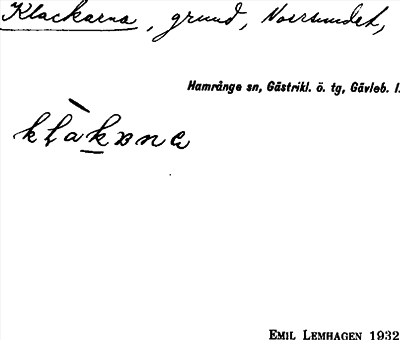 Klackarna, grund, Norrsundet,
Hamrånge sn, Gästrikl. ö. tg, Gävleb. l.
kḷàk̲ɒna
EMIL LEMHAGEN 1932